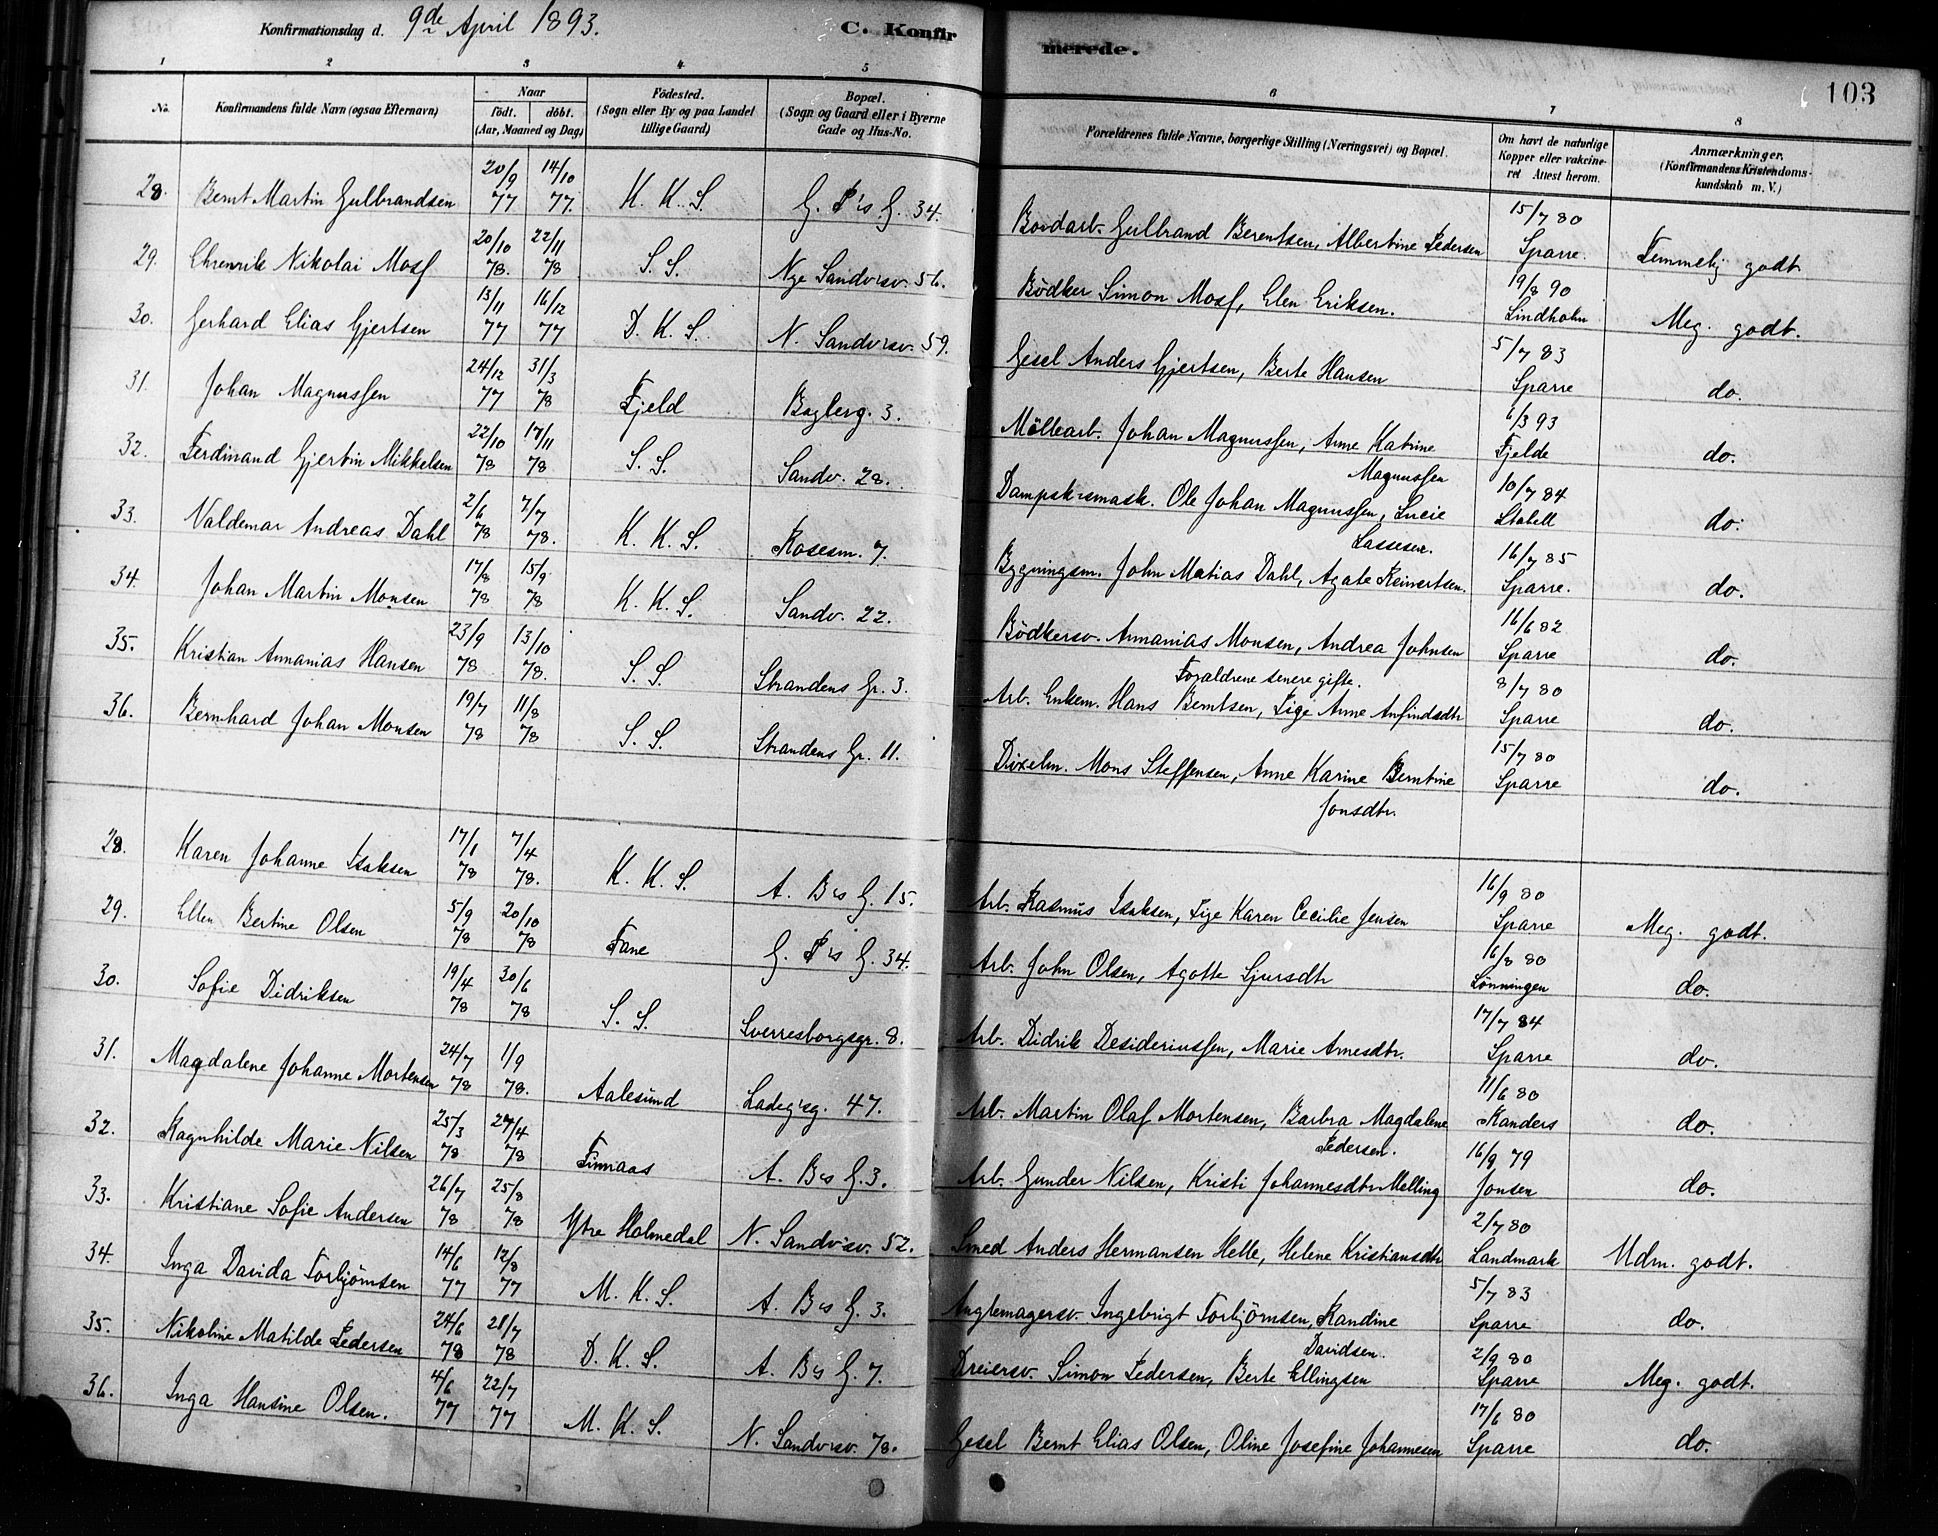 Konfirmationsdag d. 9de April 1893.
C. Konfirmerede.
103
1 2 3 4 5 6 7 8
No.
Konfirmandens fulde Navn (ogsaa Efternavn)
Naar
födt. döbt.
(Aar, Maaned og Dag)
Födested.
(Sogn eller By og paa Landet tillige Gaard)
Bopæl.
(Sogn og Gaard eller i Byerne Gade og Hus-No.
Forældrenes fulde Navne, borgerlige Stilling (Næringsvei) og Bopæl.
Om havt de naturlige Kopper eller vakcineret Attest herom.
Anmærkninger.
(Konfirmandens Kristendomskundskab m. V.)
28. Bernt Martin Gulbrandsen 20/9 77 14/10 77. K. K. S. G. P's G. 34. Bordarb. Gulbrand Berentsen, Albertine Pedersen 15/7 80 Sparre. Temmelig godt
29. Ehrenrik Nikolai Moss 20/10 78. 22/11 78 S. S. Nye Sandvsv. 56. Bödker Simon Moss, Elen Eriksen. 19/8 90 Lindholm Meg. godt.
30. Gerhard Elias Gjertsen 13/11 77 16/12 77 D. K. S. N. Sandvsv. 59. Gesel Anders Gjertsen, Berte Hansen 5/7 83 Sparre do.
31. Johan Magnussen 24/12 77 31/3 78 Fjeld Bagberg. 3. Möllearb. Johan Magnussen, Anne Katrine Magnussen 6/3 93 Fjelde do.
32. Ferdinand Gjertin Mikkelsen 22/10 78 17/11 78 S. S. Sandv. 28. Dampsk.smask. Ole Johan Magnussen, Lucie Lassesen. 10/7 84 Stabell do.
33. Valdemar Andreas Dahl 2/6 78 7/7 78. K. K. S. Rosesm. 7. Bygningsm. John Matias Dahl, Agate Reinertsen. 16/7 85 Sparre. do.
34. Johan Martin Monsen 17/8 78 15/9 78 K. K. S. Sandv. 22. Bödkersv. Annanias Monsen, Andrea Johnsen 16/6 82 Sparre do.
Forældrene senere gifte.
35. Kristian Annanias Hansen 23/9 78 13/10 78. S. S. Strandens Gr. 3. Arb. Enkem. Hans Berntsen, Pige Anne Anfindsdtr 8/7 80 Sparre do.
36. Bernhard Johan Monsen 19/7 78 11/8 78 S. S. Strandens Gr. 11. Dixelm. Mons Steffensen, Anne Karine Berntine Jonsdtr. 15/7 80 Sparre do.
28. Karen Johanne Isaksen 17/1 78 7/4 78. K. K. S. A. B's G. 15. Arb. Rasmus Isaksen, Pige Karen Cecilie Jensen 16/9 80 Sparre Meg. godt.
29. Ellen Bertine Olsen 5/9 78 20/10 78 Fane G. P's G. 34. Arb. John Olsen, Agotte Sjursdtr 16/8 80 Lönningen do.
30. Sofie Didriksen 19/4 78 30/6 78 S. S. Sverresborgsgr. 8. Arb. Didrik Desideriussen, Marie Arnesdtr. 17/7 84 Sparre do.
31. Magdalene Johanne Mortensen 24/7 78 1/9 78. Aalesund Ladeg'sg. 47. Arb. Martin Olaf Mortensen, Barbra Magdalene Pedersen. 11/6 80 Randers do.
32. Ragnhilde Marie Nilsen 25/3 78 27/4 78 Finnaas A. B's G. 3. Arb. Gunder Nilsen, Kristi Johannesdtr Melling 16/9 79 Jonsen do.
33. Kristiane Sofie Andersen 26/7 78 25/8 78 Ytre Holmedal N. Sandv'sv. 52. Smed Anders Hermansen Helle, Helene Kristiansdtr 2/7 80 Landmark Udm. godt.
34. Inga Davida Torbjörnsen 14/6 77 12/8 77 M. K. S. A. B's G. 3. Anglemagersv. Ingebrigt Torbjörnsen, Randine Davidsen. 5/7 83 Sparre do.
35. Nikoline Matilde Pedersen 24/6 78 21/7 78 D. K. S. A. B's G. 7. Dreiersv. Simon Pedersen, Berte Ellingsen 2/9 80 Sparre Meg. godt.
36. Inga Hansine Olsen. 4/6 77 22/7 77 M. K. S. N. Sandvsv. 78. Gesel Bernt Elias Olsen, Oline Josefine Johannesen 17/6 80 Sparre do.